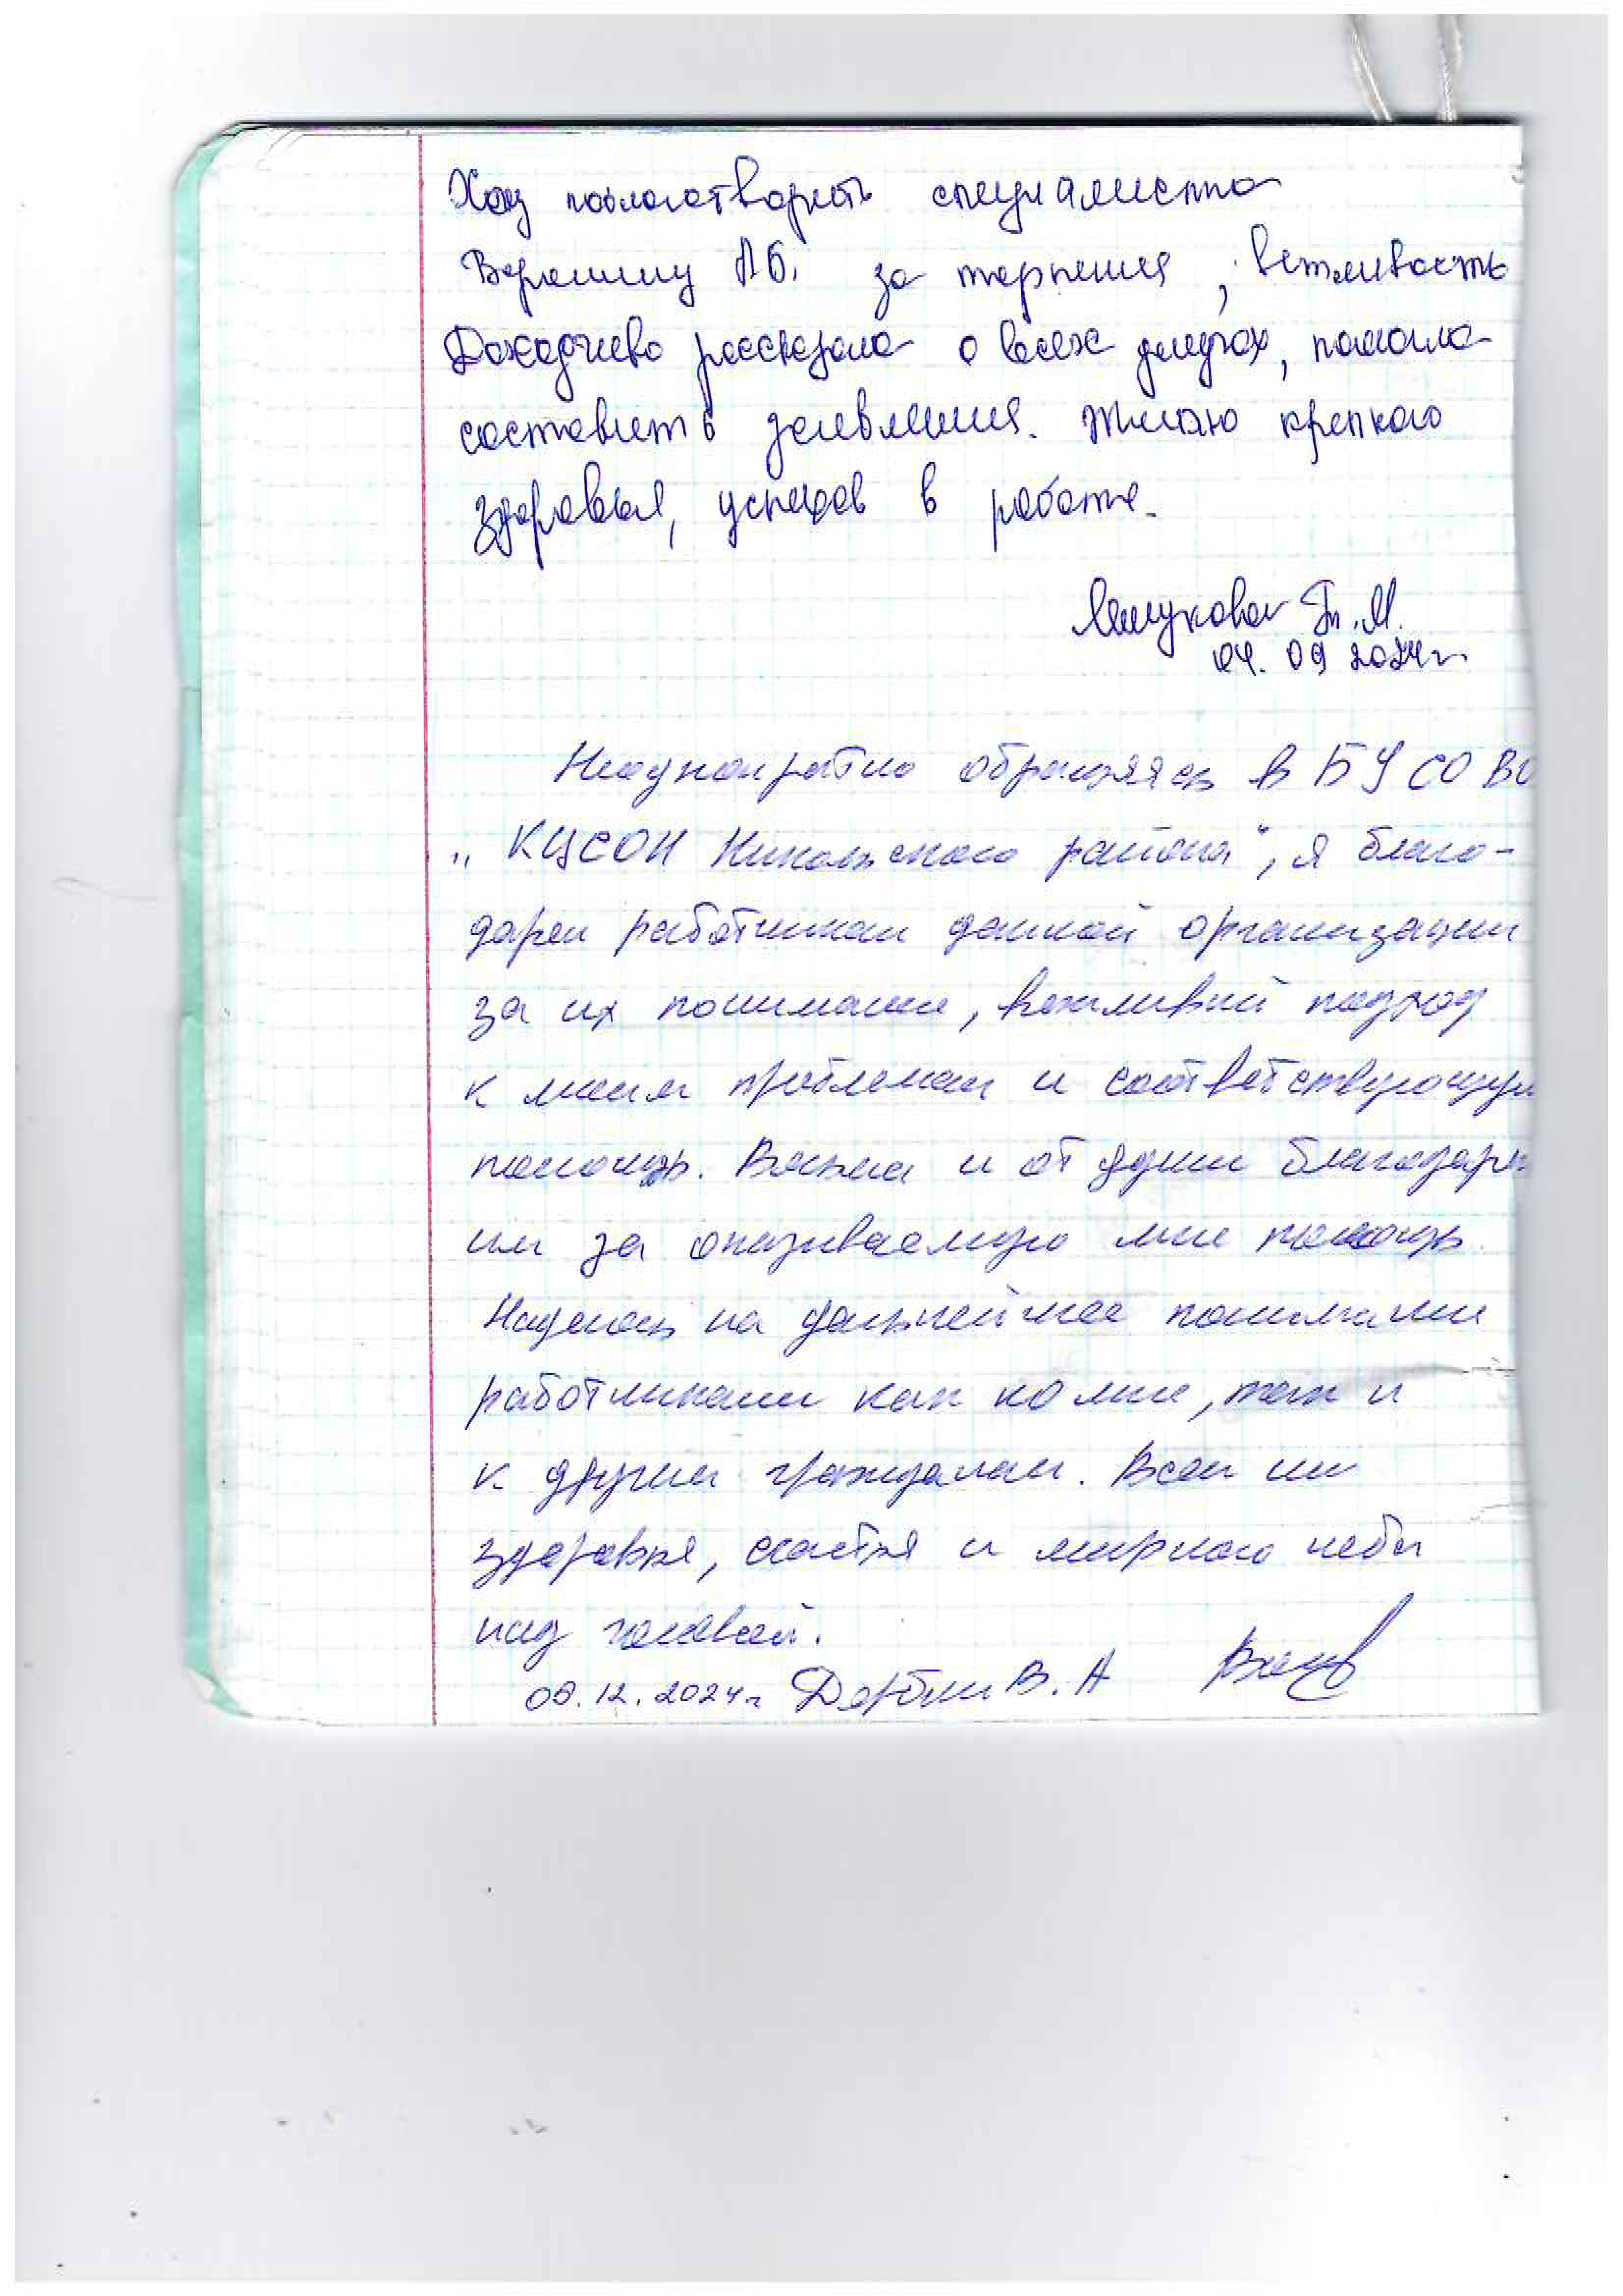 специалиста
за терпения, вежливость
Доходчево рассказала о всех услугах, помогла
составить заевления. Желаю крепкого
здоровья, успехов в работе.
Т.М.
04. 09 2024г.
Неоднократно обращаясь в БУ СО ВО
„КЦСОН Никольского района", я благо-
дарен работникам данной организации
за их понимание, вежливый подход
к моим проблемам и соответствующую
помощь. и от души благодарен
им за оказываемую мне помощь.
Надеюсь на дальнейшее понимание
работниками как ко мне, так и
к другим гражданам. Всем им
здоровья, счастья и мирного неба
над головой.
09.12.2024г В. А